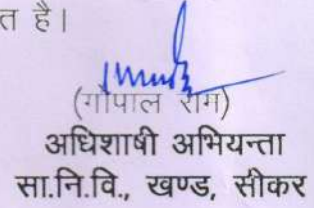 त है।
(गोपाल राम)
अधिशाषी अभियन्ता
सा.नि.वि., खण्ड, सीकर